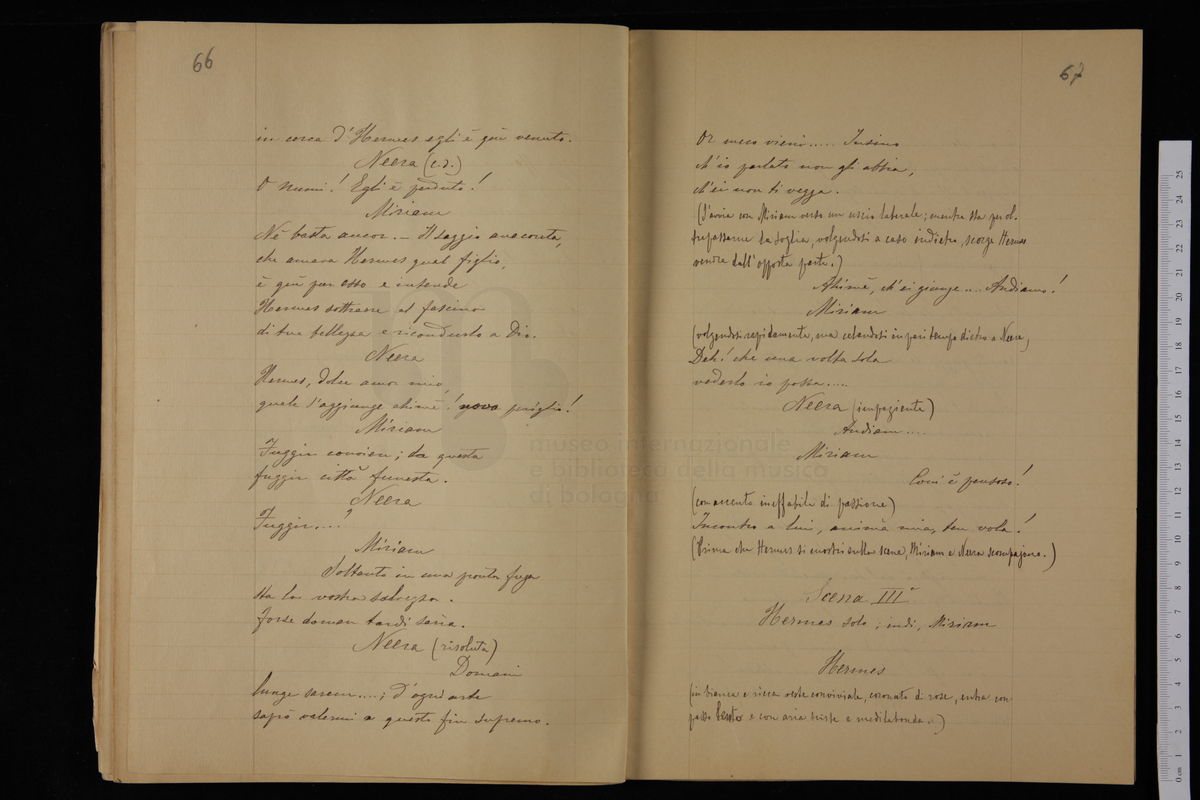 66
in cerca d'Hermes egli è qui venuto.
Neera (c.s.)
O Numi! Egli è perduto!
Miriam
Nè basta ancor. – Il saggio anacoreta,
che amava Hermes qual figlio,
è qui per esso e intende
Hermes sottrarre al fascino
di tua bellezza e ricondurlo a Dio.
Neera
Hermes, dolce amor mio,
quale t'aggiunge ahimè! novo periglio!
Miriam
Fuggir convien; da questa
fuggir città funesta.
Neera
Fuggir....?
Miriam
Soltanto in una pronta fuga
sta la vostra salvezza.
Forse doman tardi saria.
Neera (risoluta)
Domani
lunge sarem....; d'ogni arte
saprò valermi a questo fin supremo.
67
Or meco vieni..... Insino
ch'io parlato non gli abbia,
ch'ei non ti vegga.
(S'avvia con Miriam verso un uscio laterale; mentre sta per ol-
trepassarne la soglia, volgendosi a caso indietro, scorge Hermes
venire dall'opposta parte.)
Ahimè, ch'ei giunge.... Andiamo!
Miriam
(volgendosi rapidamente, ma celandosi in pari tempo dietro a Neera)
Deh! che una volta sola
vederlo io possa....
Neera (impaziente)
Andiam....
Miriam
Com'è pensoso!
(con accento ineffabile di passione)
Incontro a lui, anima mia, ten vola!
(Prima che Hermes si mostri sulla scena, Miriam e Neera scompajono.)
Scena III
Hermes solo; indi, Miriam
Hermes
(in bianca e ricca veste conviviale, coronato di rose, entra con
passo lento e con aria triste e meditabonda.)
museo internazionale
e biblioteca della musica
di bologna
0 cm 1 2 3 4 5 6 7 8 9 10 11 12 13 14 15 16 17 18 19 20 21 22 23 24 25